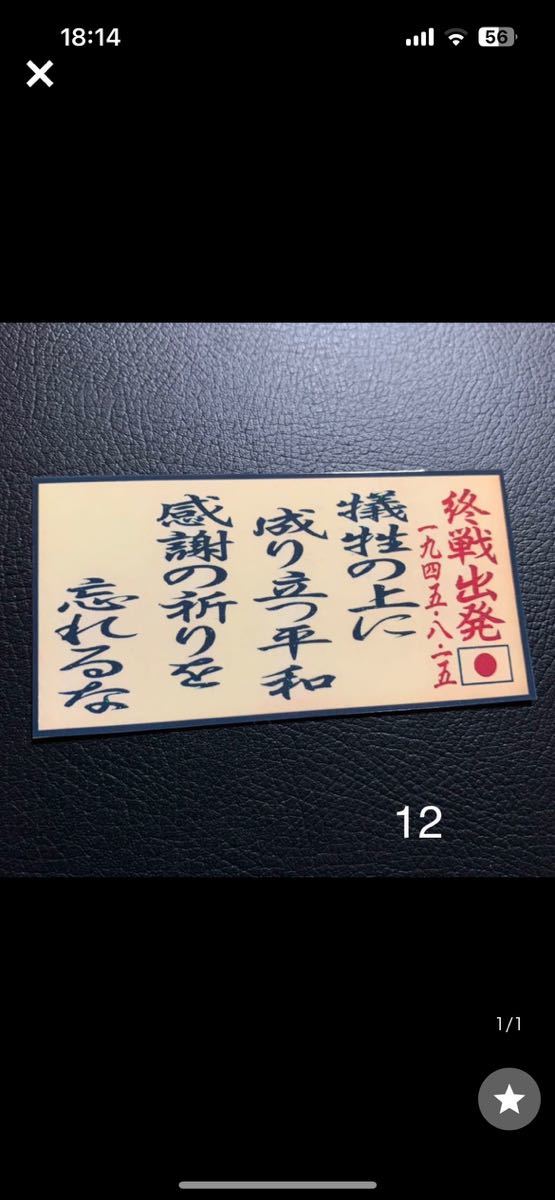 18:14
56
終戦出発
一九四五・八・一五
犠牲の上に
成り立つ平和
感謝の祈りを
忘れるな
12
1/1